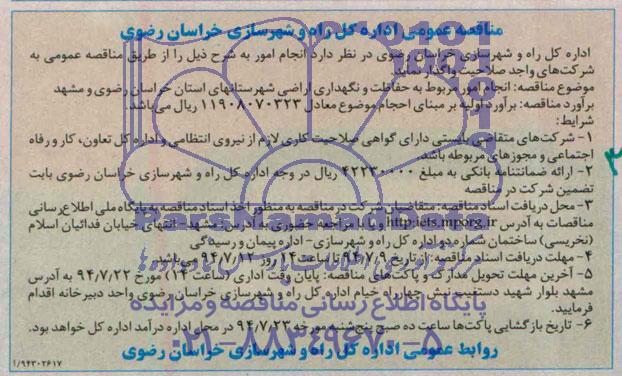 مناقصه عمومی اداره کل راه و شهرسازی خراسان رضوی
اداره کل راه و شهرسازی خراسان رضوی در نظر دارد انجام امور به شرح ذیل را از طریق مناقصه عمومی به
شرکت‌های واجد صلاحیت واگذار نماید.
موضوع مناقصه: انجام امور مربوط به حفاظت و نگهداری اراضی شهرستانهای استان خراسان رضوی و مشهد
برآورد مناقصه: برآورد اولیه بر مبنای احجام موضوع معادل ۱۱۹۰۸۰۷۰۳۲۳ ریال می‌باشد.
شرایط:
۱- شرکت‌های متقاضی بایستی دارای گواهی صلاحیت کاری لازم از نیروی انتظامی و اداره کل تعاون، کار و رفاه
اجتماعی و مجوزهای مربوطه باشند.
۲- ارائه ضمانتنامه بانکی به مبلغ ۴۲۲۳۰۰۰۰ ریال در وجه اداره کل راه و شهرسازی خراسان رضوی بابت
تضمین شرکت در مناقصه
۳- محل دریافت اسناد مناقصه: متقاضیان شرکت در مناقصه به منظور اخذ اسناد مناقصه به پایگاه ملی اطلاع رسانی
مناقصات به آدرس http:iets.mporg.ir و یا با مراجعه حضوری به آدرس: مشهد- انتهای خیابان فدائیان اسلام
(نخریسی) ساختمان شماره دو اداره کل راه و شهرسازی- اداره پیمان و رسیدگی
۴- مهلت دریافت اسناد مناقصه: از تاریخ ۹۴/۷/۹ تا ساعت ۱۴ روز ۹۴/۷/۱۲ می‌باشد.
۵- آخرین مهلت تحویل مدارک و پاکت‌های مناقصه: پایان وقت اداری (ساعت ۱۴) مورخ ۹۴/۷/۲۲ به آدرس
مشهد بلوار شهید دستغیب نبش چهارراه خیام اداره کل راه و شهرسازی خراسان رضوی واحد دبیرخانه اقدام
فرمایید.
۶- تاریخ بازگشایی پاکت‌ها ساعت ده صبح پنج‌شنبه مورخه ۹۴/۷/۲۳ در محل اداره درآمد اداره کل خواهد بود.
روابط عمومی اداره کل راه و شهرسازی خراسان رضوی
۹۴۳۰۲۶۱۷/آ
۳
ParsNamadData
پایگاه اطلاع رسانی مناقصه و مزایده
۰۲۱-۸۸۳۴۹۶۷۰-۵